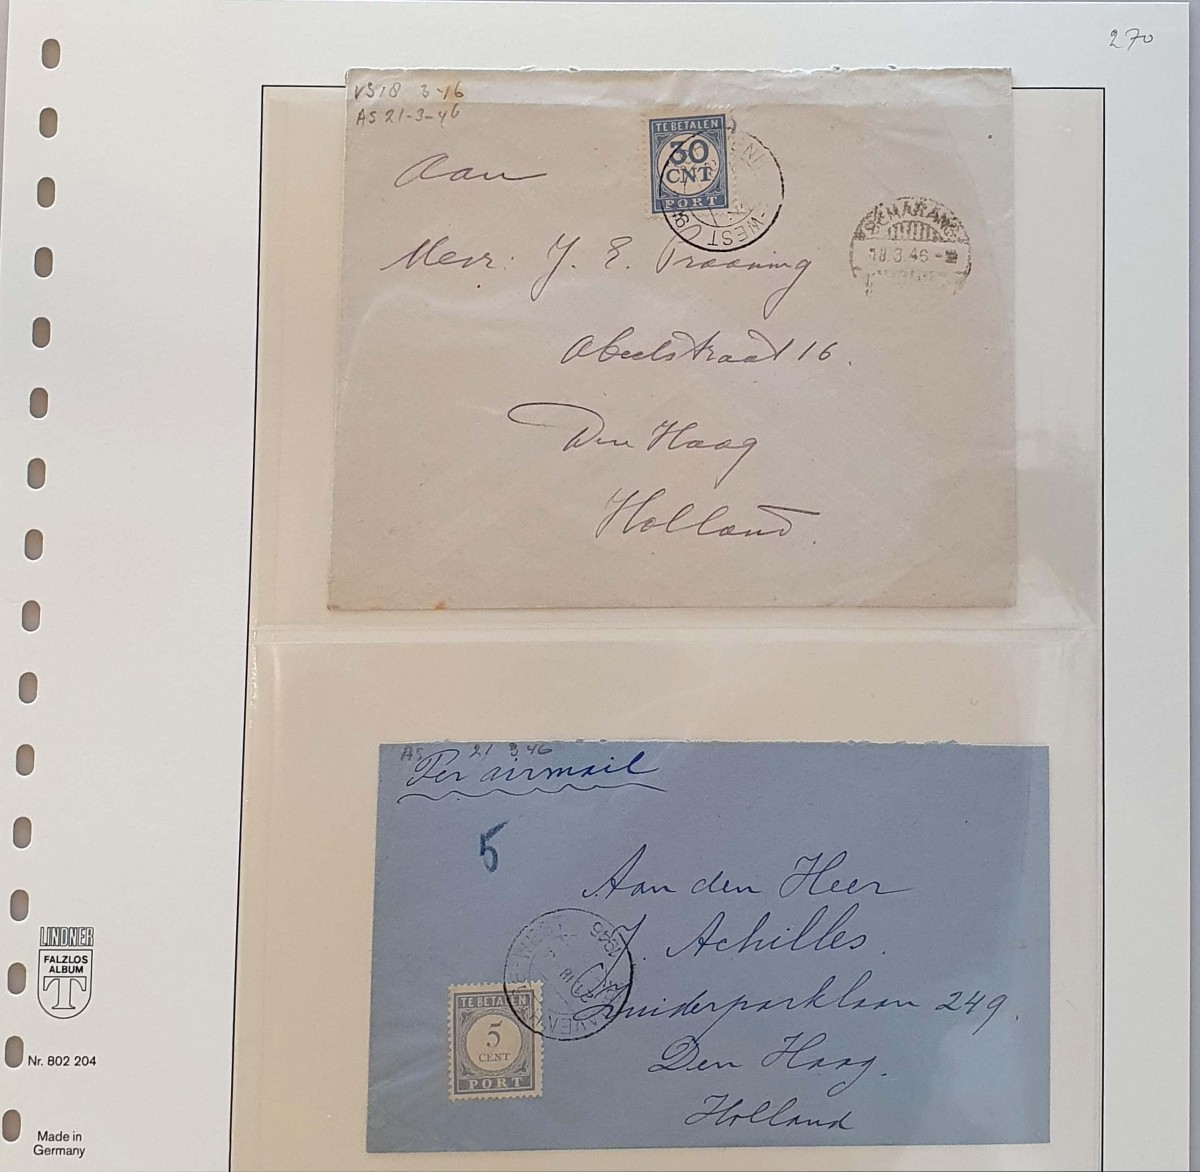 270
VS 18 3-46
AS 21-3-46
TE BETALEN
30
CNT
PORT
WEST
SEMARANG
18.3.46
Aan
Mevr: J. E. Praaning
Abeelstraat 16.
Den Haag
Holland.
AS 21 3 46
Per airmail
5
Aan den Heer
J. Achilles.
Zuiderparklaan 249.
Den Haag.
Holland
1946
TE BETALEN
5
CENT
PORT
LINDNER
FALZLOS
ALBUM
T
Nr. 802 204
Made in
Germany